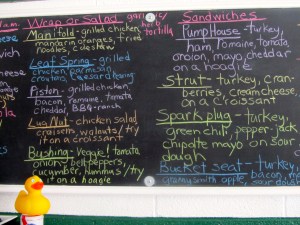 Wrap or Salad
garlic/
herb
tortilla
Manifold - grilled
chicken,
mandarin oranges, fried
noodles, coleslaw
Leaf Spring - grilled
chicken, parmesan,
croutons, Caesar dressing
Piston - grilled chicken,
bacon, romaine, tomato,
cheddar, BBQ-ranch
Lug Nut - chicken salad
craisens, walnuts / try
it on a croissant
Bushing - Veggie! tomato
onion, bell peppers,
cucumber, hummus / try
it on a hoagie
Sandwiches
Pumphouse - turkey,
ham, romaine, tomato,
onion, mayo, cheddar
on a hoagie
Strut - turkey, cran-
berries, cream cheese,
on a croissant
Spark plug - turkey,
green chili, pepper-jack
chipotle mayo on sour
dough
Bucket seat - turkey,
granny smith apple, bacon,